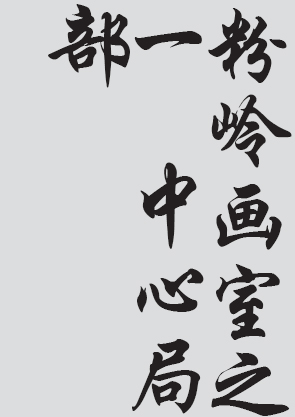 粉岭画室之
一 中心局
部